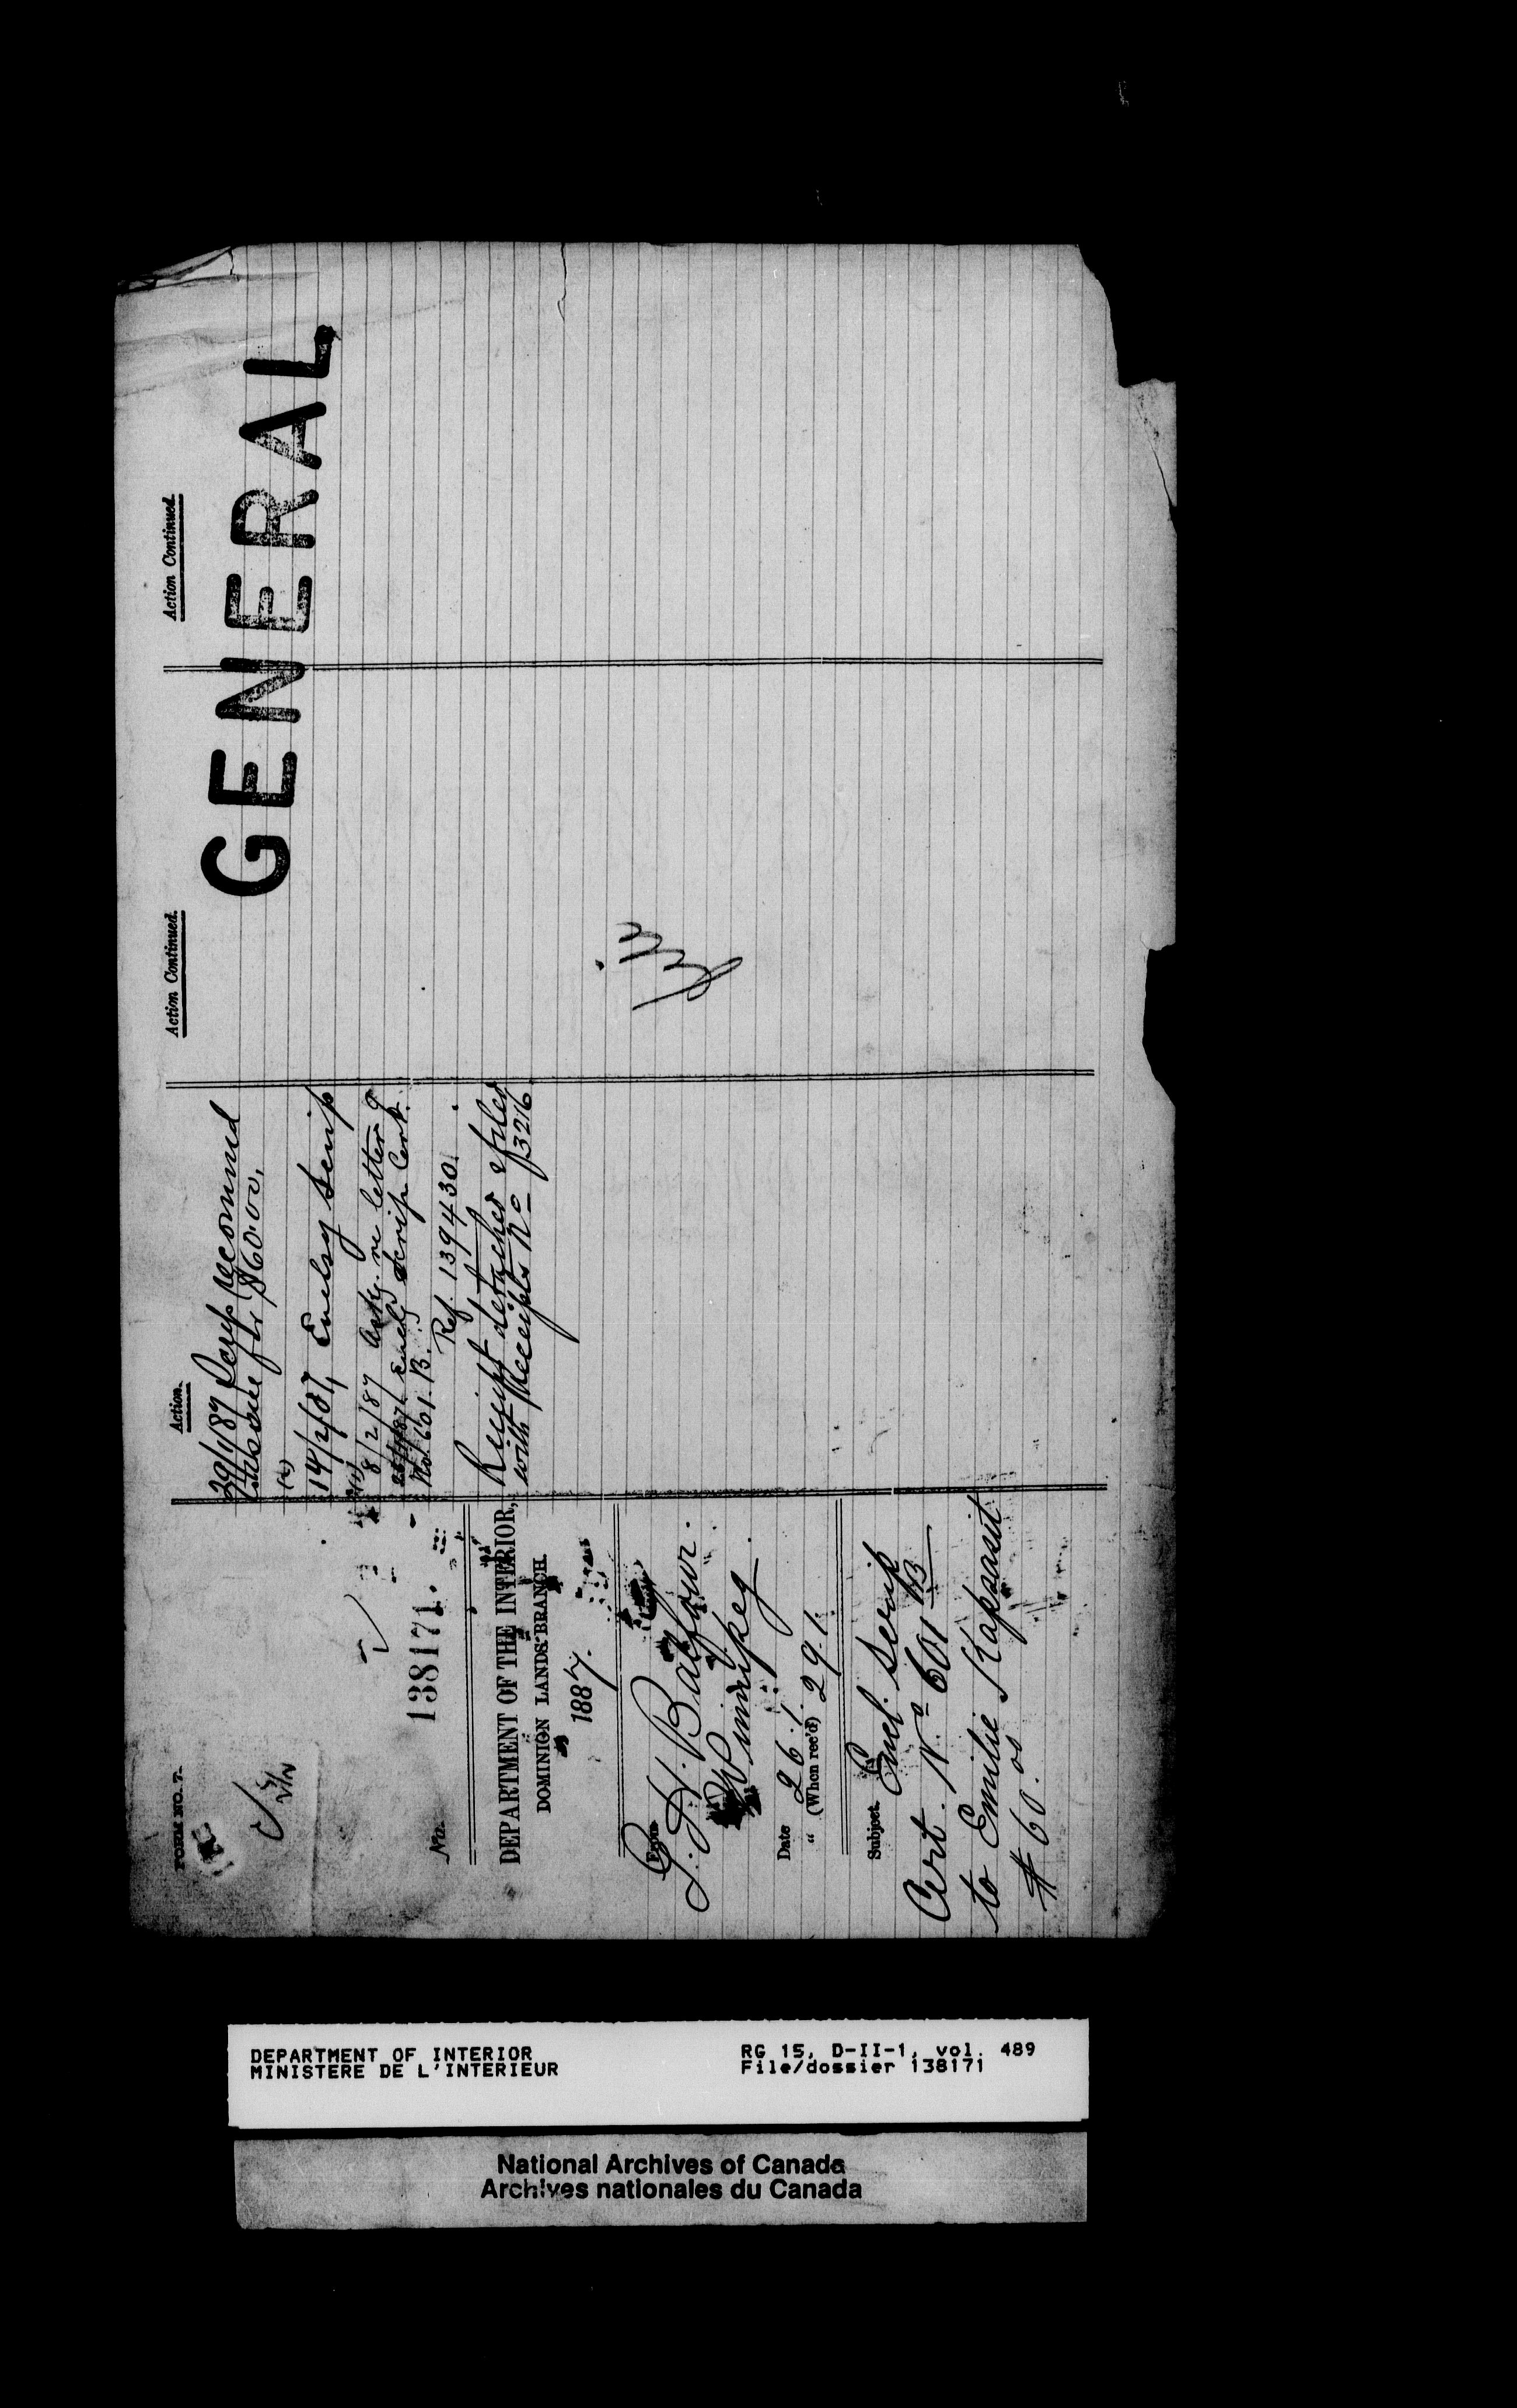 FORM NO. 7.
No. 138171.
DEPARTMENT OF THE INTERIOR,
DOMINION LANDS BRANCH.
1887.
From
G. H. Balfour.
Winnipeg.
Date 26.1.
" (When rec'd) 29.1.
Subject.
Encl. Scrip
Cert. No 601 B
to Emilie Kapasit
$60.00
Action.
29/1/87 recomd
issue for $60.00.
(2)
14/2/87, Enclsg Scrip
(1)
8/2/87 Ackg. re letter &
Encl's scrip Cert.
No. 601. B.
Ref. 139430.
Receipt detached & filed
with Receipts No 3276
Action Continued.
33
Action Continued.
GENERAL
DEPARTMENT OF INTERIOR
MINISTERE DE L'INTERIEUR
RG 15, D-II-1, vol. 489
File/dossier 138171
National Archives of Canada
Archives nationales du Canada